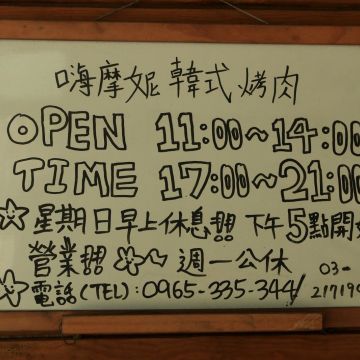 嗨摩妮韓式烤肉
OPEN 11:00~14:00
TIME 17:00~21:00
☆星期日早上休息!!! 下午5點開始
營業!!! ☆~ 週一公休 03-
☆電話(TEL):0965-335-344/ 217199